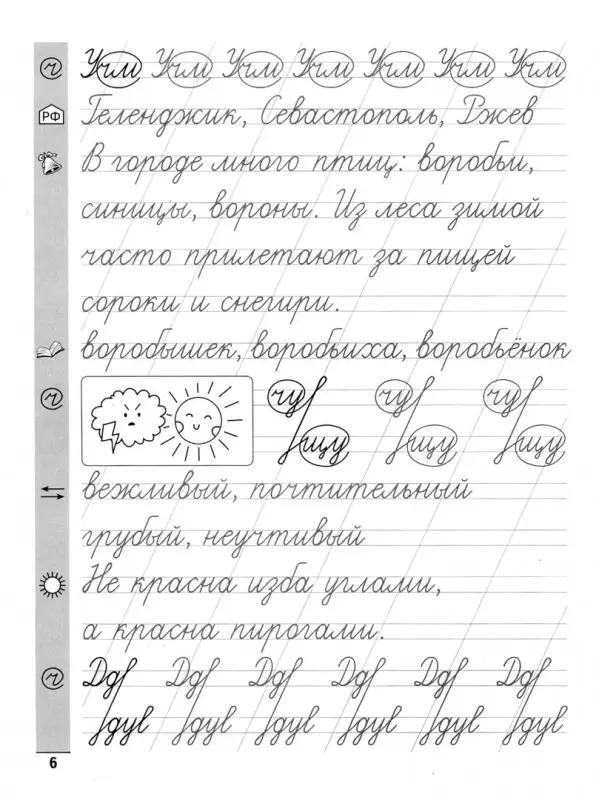 ч Учм Учм Учм Учм Учм Учм Учм
РФ Геленджик, Севастополь, Ржев
В городе много птиц: воробьи,
синицы, вороны. Из леса зимой
часто прилетают за пищей
сороки и снегири.
воробышек, воробьиха, воробьёнок
ч чу чу чу
щу щу щу
вежливый, почтительный
грубый, неучтивый
Не красна изба углами,
а красна пирогами.
ч
6